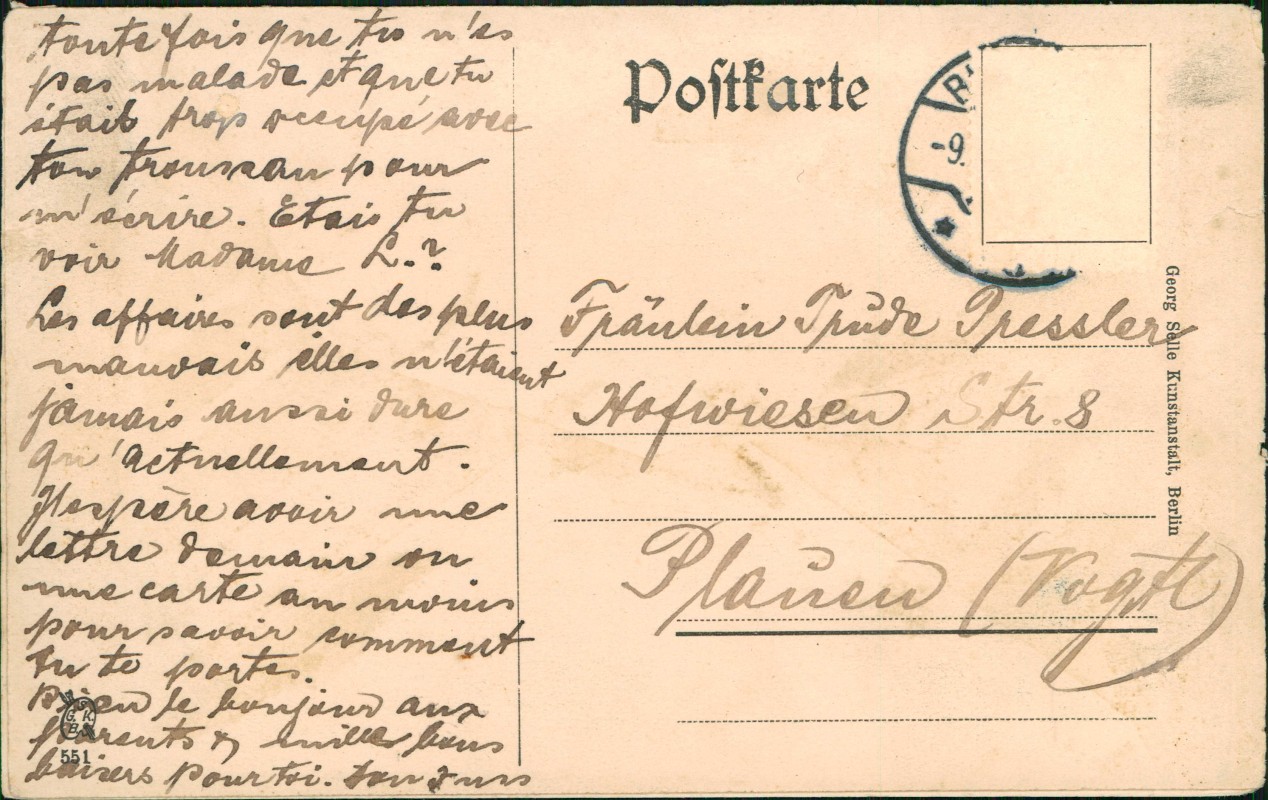 toutefois que tu n'es
pas malade et que tu
était trop occupé avec
ton troussau pour
m'écrire. Etais tu
voir Madame L.?
Les affaires sont des plus
mauvais elles n'étaient
jamais aussi dure
qu'actuellement.
J'espère avoir une
lettre demain ou
une carte au moins
pour savoir comment
tu te portes.
Bien le bonjour aux
parents & mille bons
baisers pour toi. ton
G. K.
551
Postkarte
-9.
Fräulein Trude Pressler
Hofwiesen Str. 8
Plauen (Vogtl)
Georg Selle Kunstanstalt, Berlin